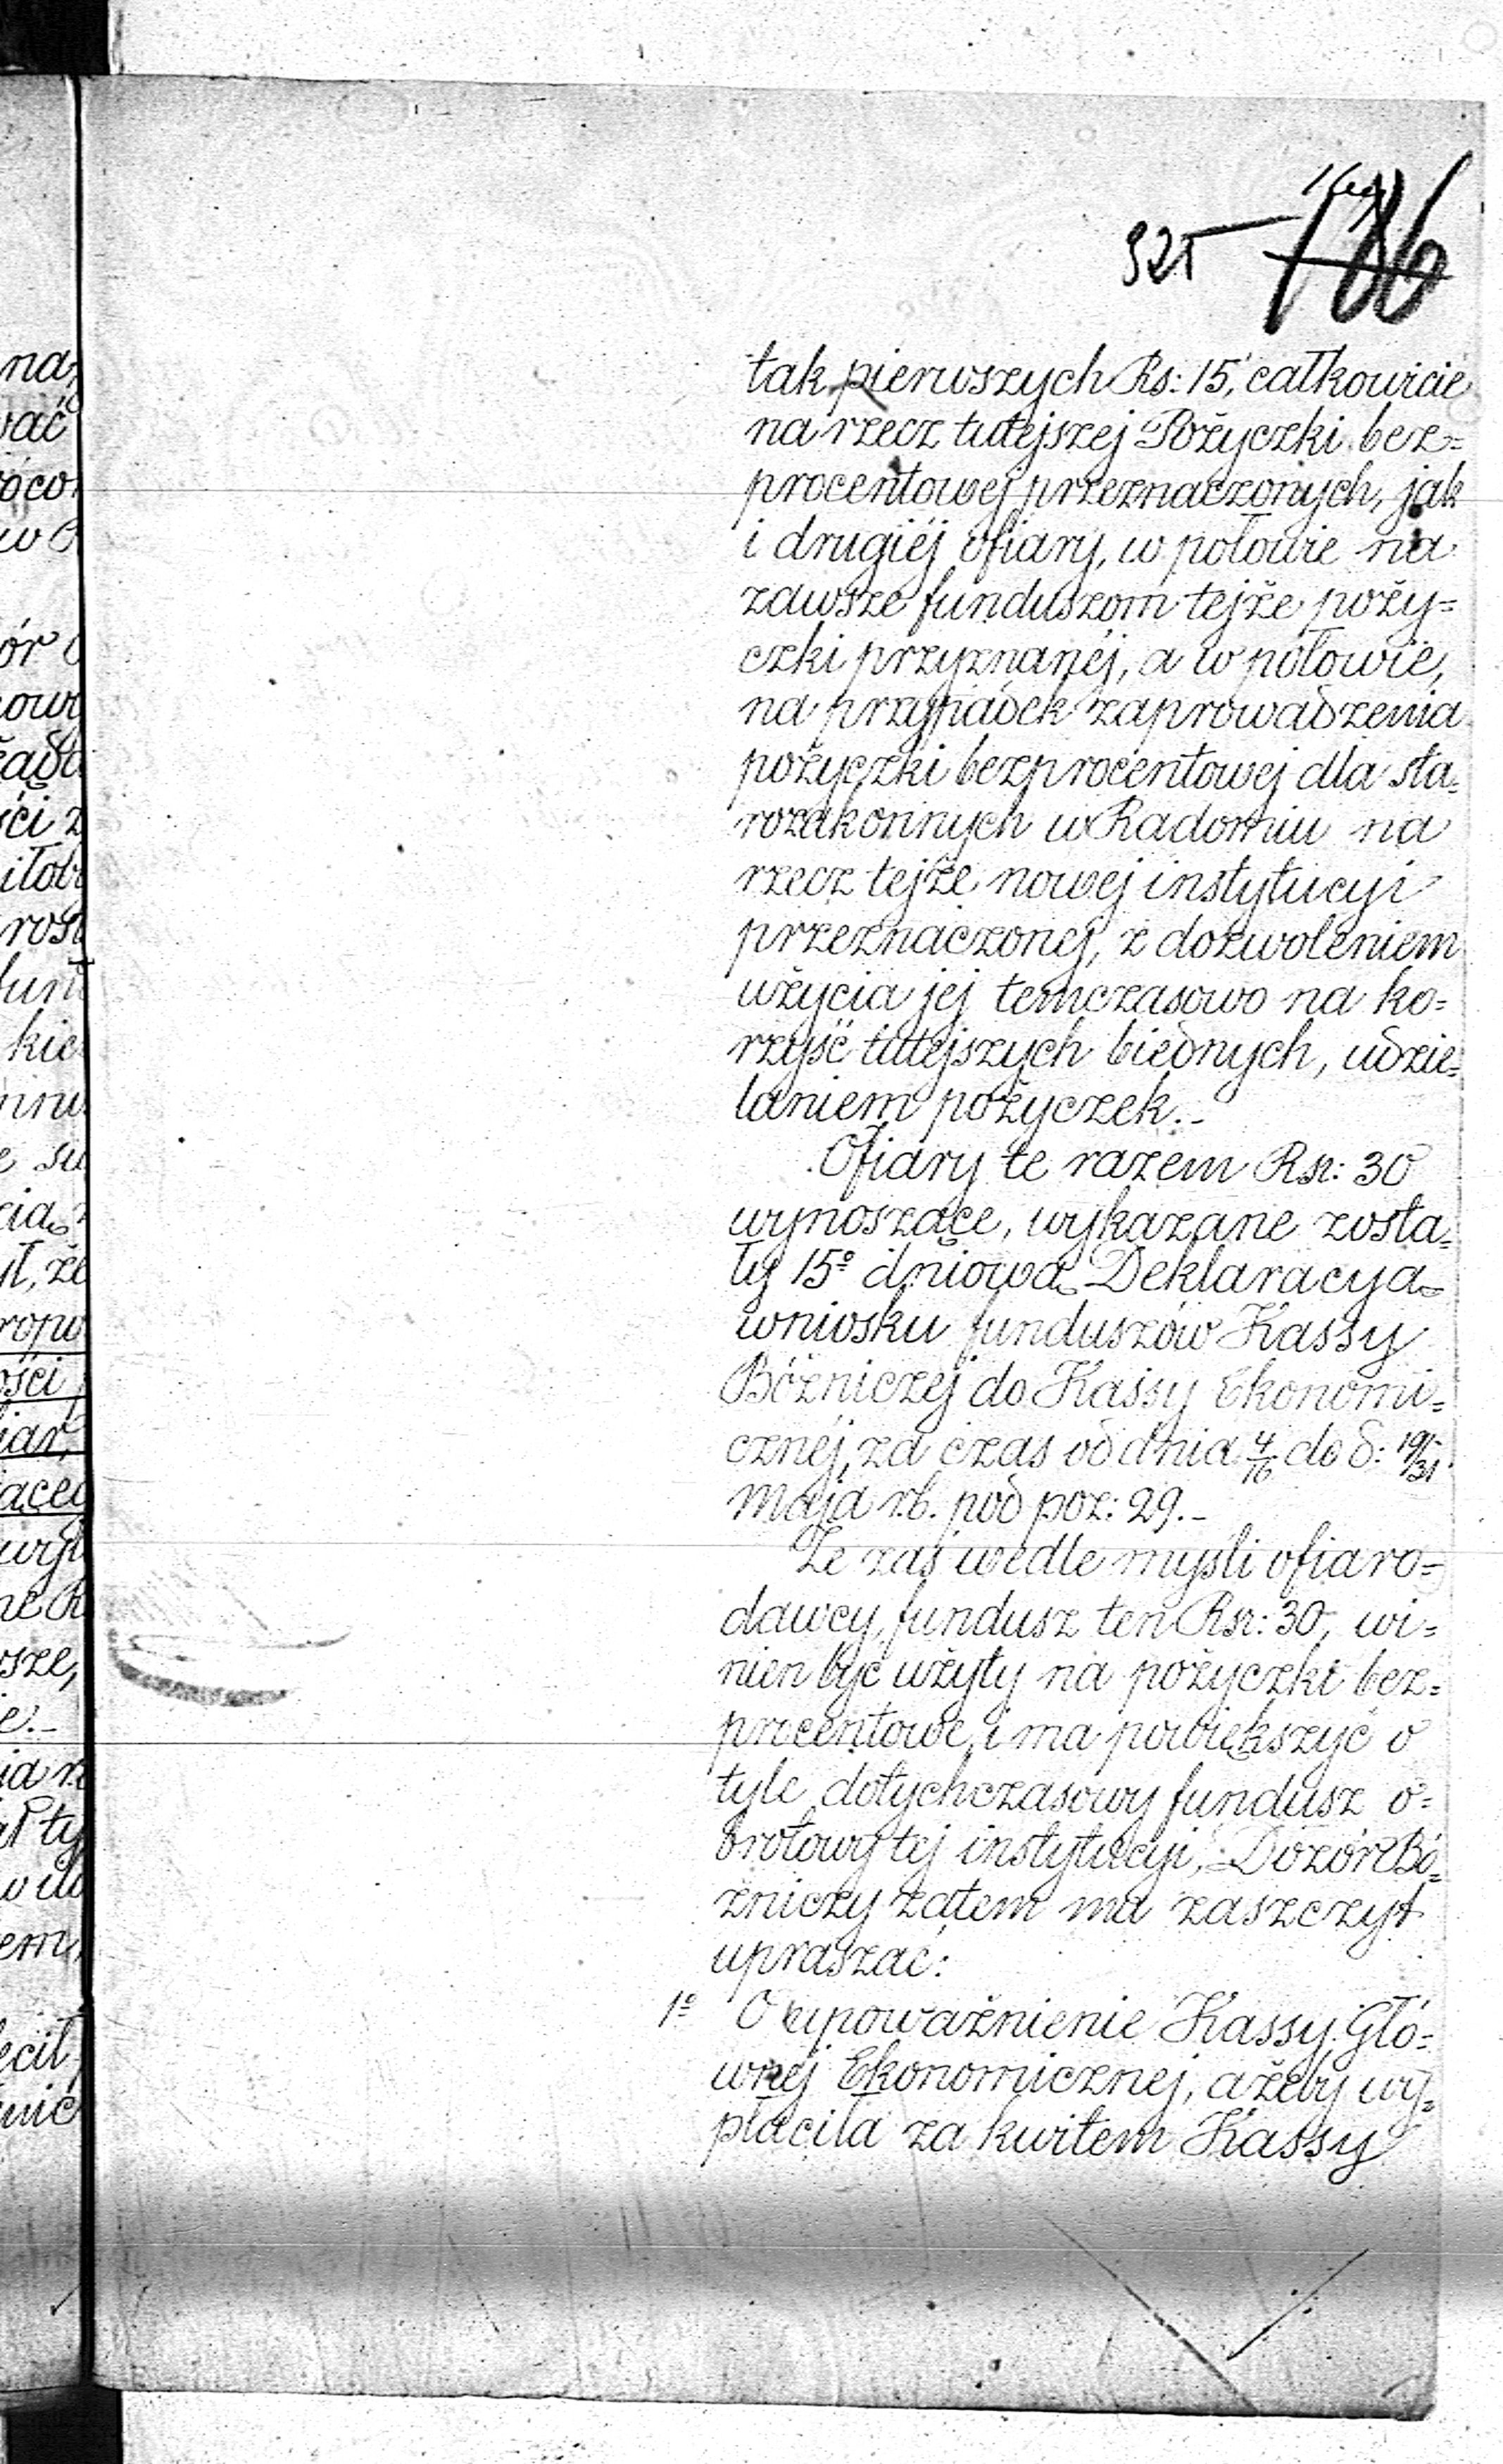 521 186
tak pierwszych Rs: 15, całkowicie
na rzecz tutejszej Pożyczki bez=
procentowej przeznaczonych, jak
i drugiéj ofiary, w połowie na
zawsze funduszom tejże poży=
czki przyznanéj, a w połowie,
na przypadek zaprowadzenia
pożyczki bezprocentowej dla sta=
rozakonnych w Radomiu na
rzecz tejże nowej instytucyi
przeznaczonej, z dozwoleniem
użycia jej temczasowo na ko=
rzyść tutejszych biednych, udzie=
laniem pożyczek.-
Ofiary te razem Rsr: 30
wynoszące, wykazane zosta=
ły 15º dniową Deklaracyą
wniosku funduszów Kassy
Bóżniczej do Kassy Ekonomi=
cznéj, za czas od dnia 4/16 do d: 19/31
maja r.b. pod poz: 29.-
Że zaś wedle myśli ofiaro=
dawcy, fundusz ten Rsr: 30, wi=
nien być użyty na pożyczki bez=
procentowe, i ma powiększyć o
tyle dotychczasowy fundusz o=
brotowy tej instytucyi, Dozór Bó=
żniczy zatem ma zaszczyt
upraszać:
1º O upoważnienie Kassy Głó=
wnej Ekonomicznej, ażeby wy=
płaciła za kwitem Kassy
na,
wać
ści z
kie
że
ości